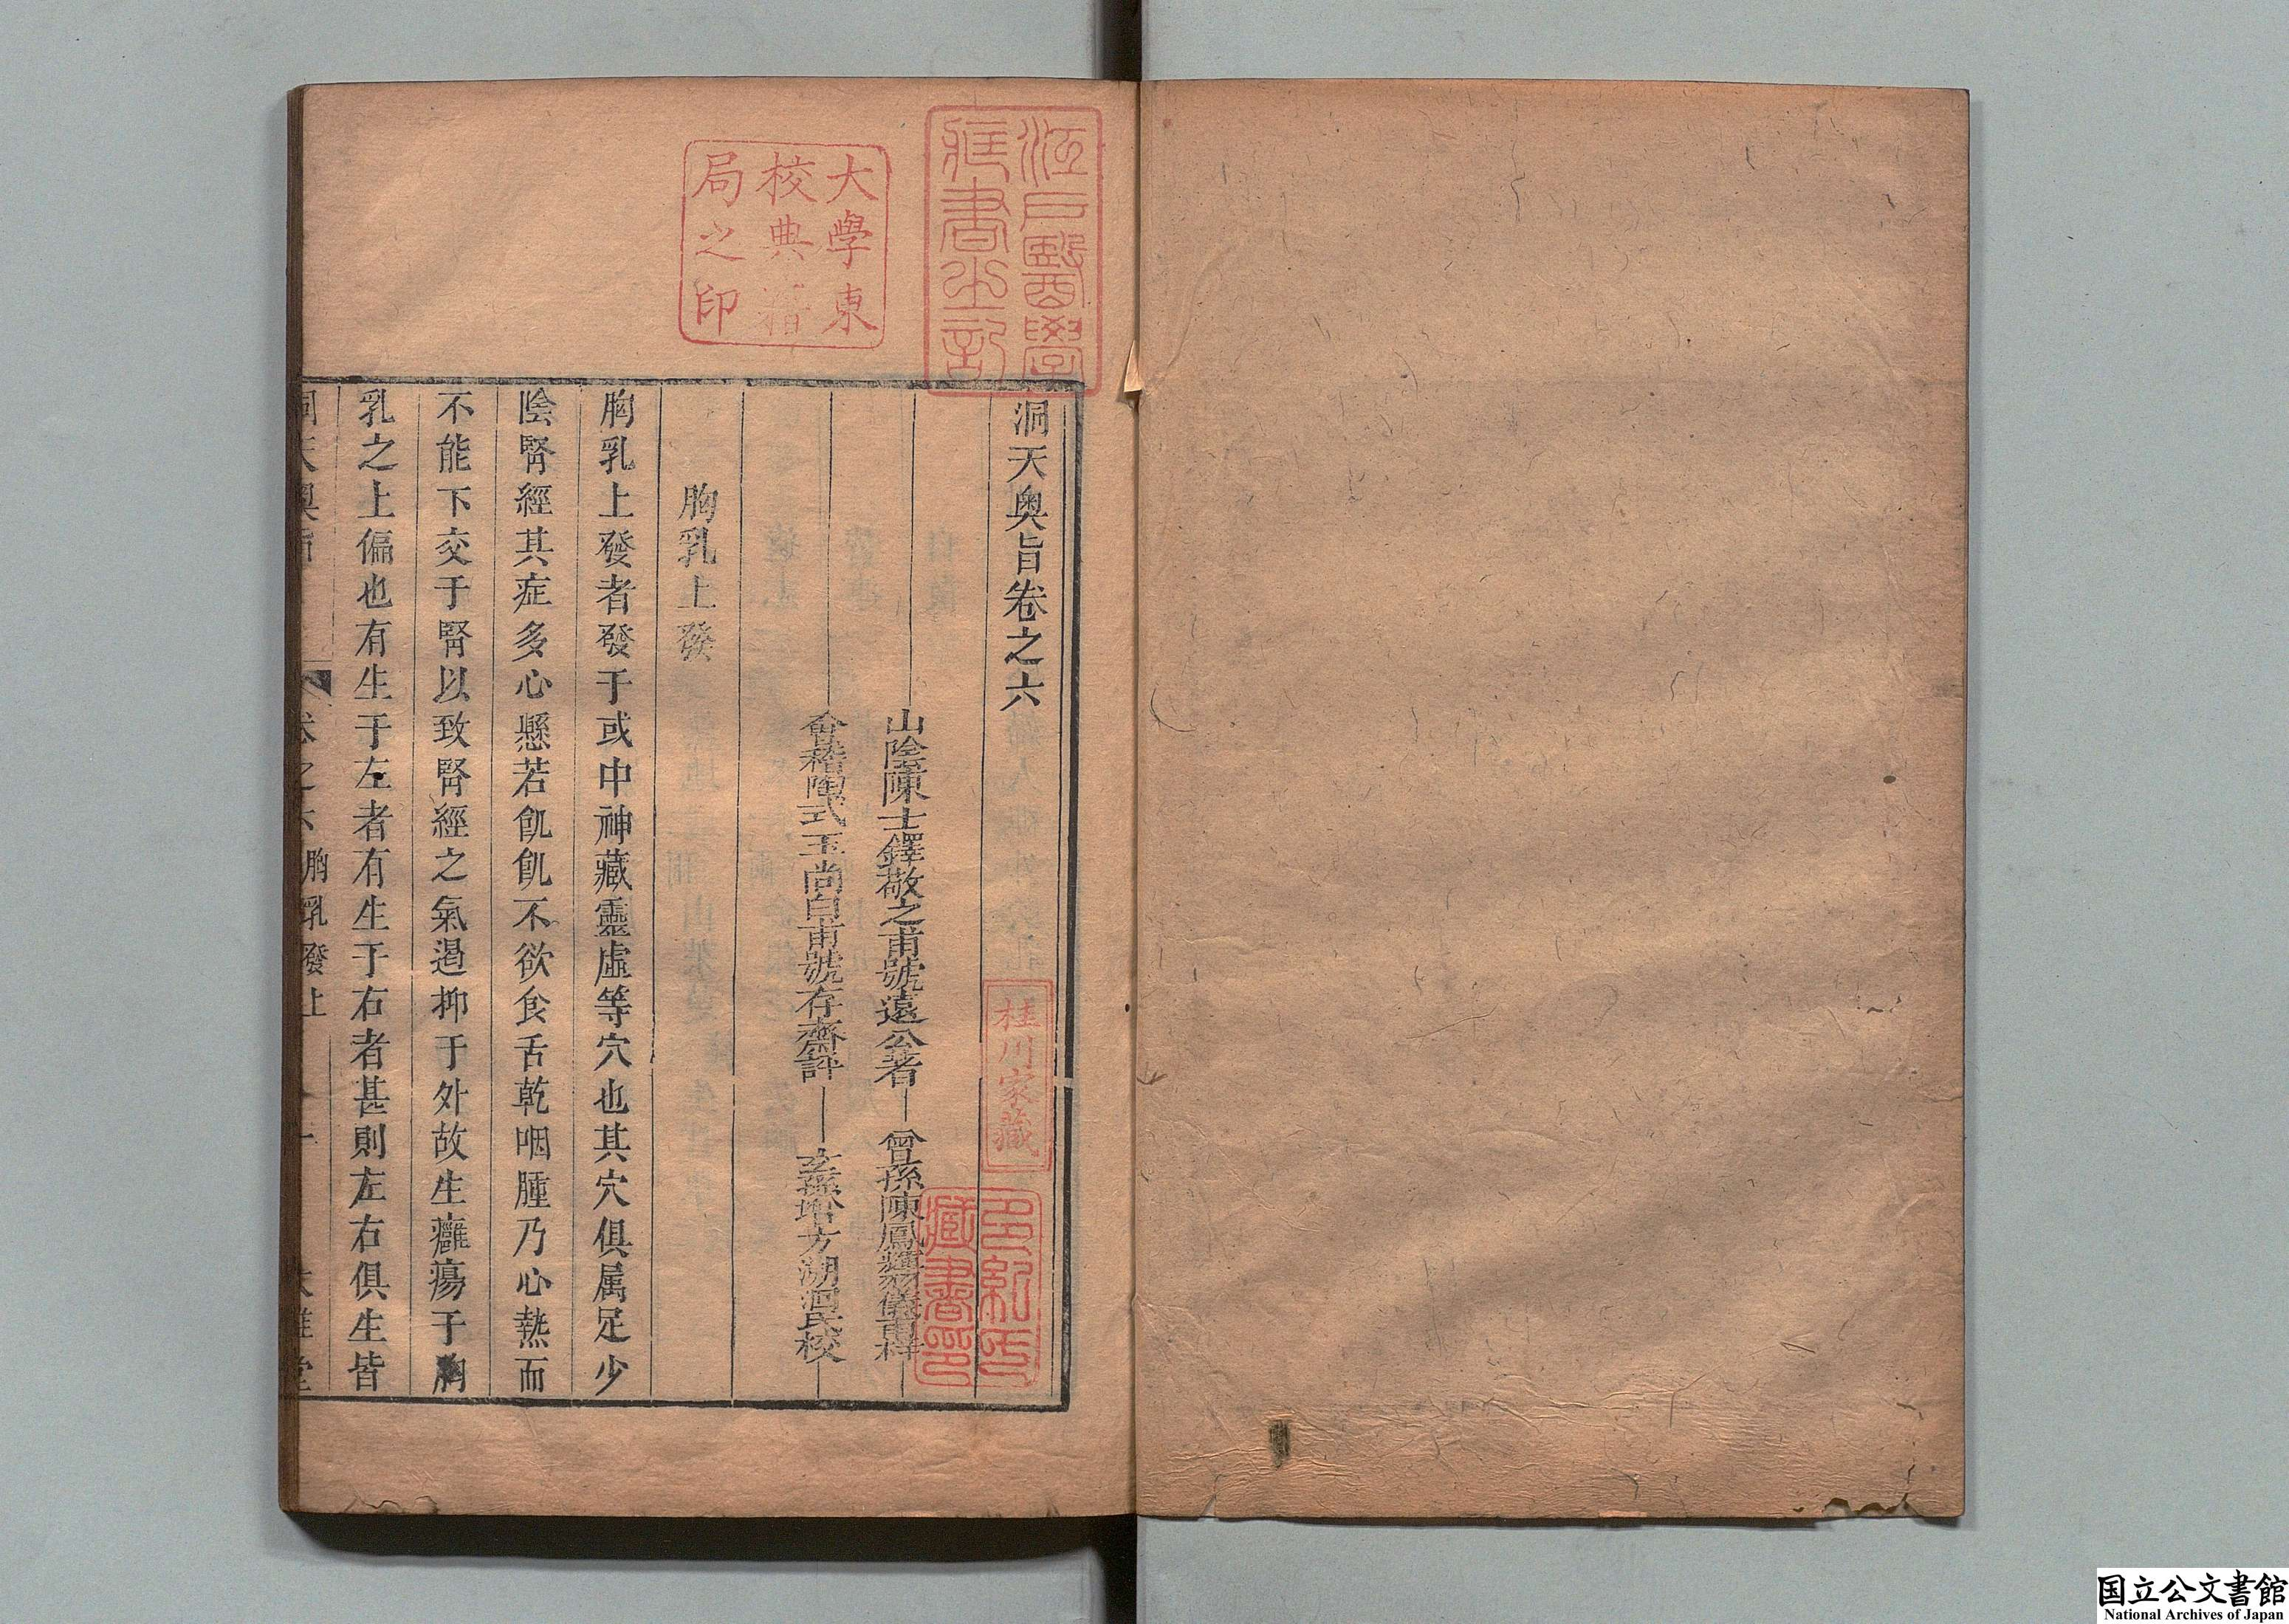 洞天奧旨卷之六
山陰陳士鐸敬之甫號遠公著 曾孫陳鳳輝羽儀甫梓
會稽陶式玉尚白甫號存齋評 玄孫壻方湖洄氏校
胸乳上發
胸乳上發者發于或中神藏靈虛等穴也其穴俱属足少
陰腎經其症多心懸若飢飢不欲食舌乾咽腫乃心熱而
不能下交于腎以致腎經之氣遏抑于外故生癰瘍于胸
乳之上偏也有生于左者有生于右者甚則左右俱生皆
洞天奧旨 卷之六 胸乳發上 一 大雅堂
江戶醫學
藏書之記
大學東
校典籍
局之印
桂川家藏
多紀氏
藏書印
国立公文書館
National Archives of Japan